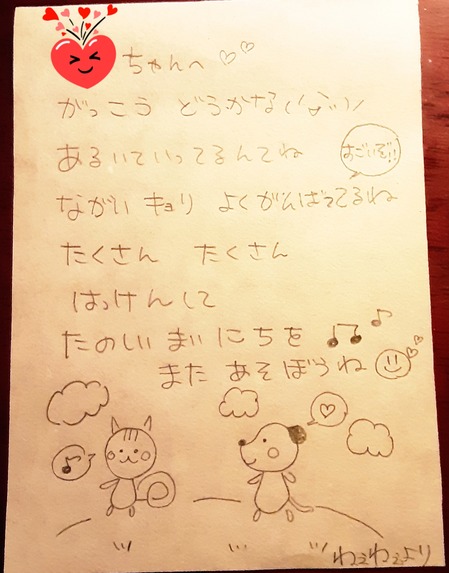 ちゃんへ
がっこう どうかな(^^)/
あるいていってるんてね
すごいぞ!!
ながい キョリ よくがんばってるね
たくさん たくさん
はっけんして
たのしい まいにちを
また あそぼうね
ねぇねぇより